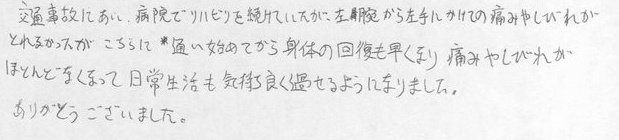 交通事故にあい、病院でリハビリを続けていたが、左腕から左手にかけての痛みやしびれが
とれなかったが こちらに*通い始めてから身体の回復も早くなり 痛みやしびれが
ほとんどなくなって 日常生活も気持ち良く過せるようになりました。
ありがとうございました。